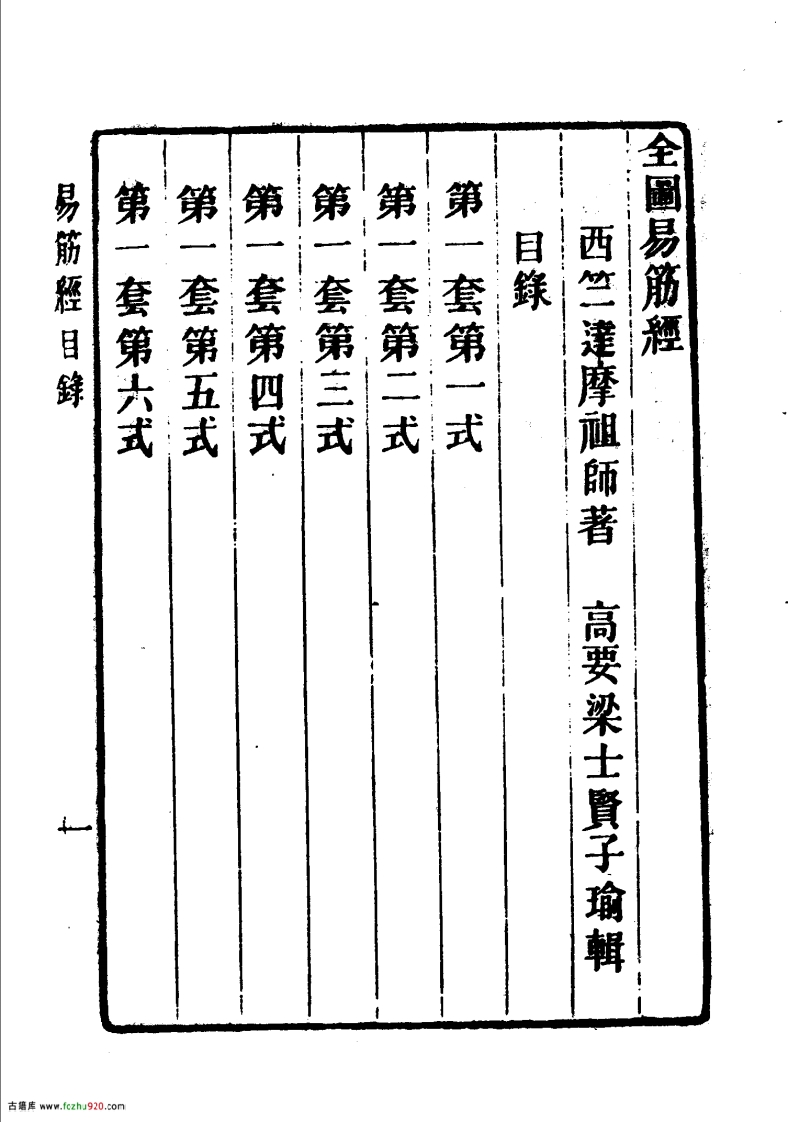 全圖易筋經
西竺達摩祖師著　高要梁士賢子瑜輯
目錄
第一套第一式
第一套第二式
第一套第三式
第一套第四式
第一套第五式
第一套第六式
易筋經目錄
十
古籍库 www.fczhu920.com